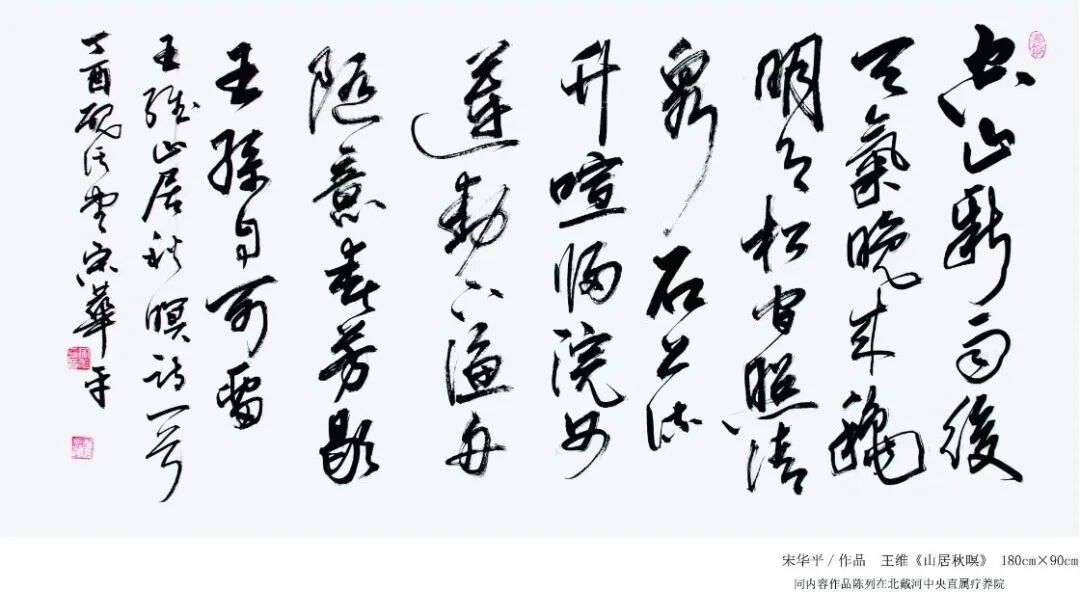 空山新雨後
天氣晚来龝
明月松間照清
泉石上流
竹喧歸浣女
蓮動下漁舟
隨意春芳歇
王孫自可留
王維山居秋暝詩一首
丁酉硯堂宋華平
宋华平/作品 王维《山居秋暝》 180cm×90cm
同内容作品陈列在北戴河中央直属疗养院